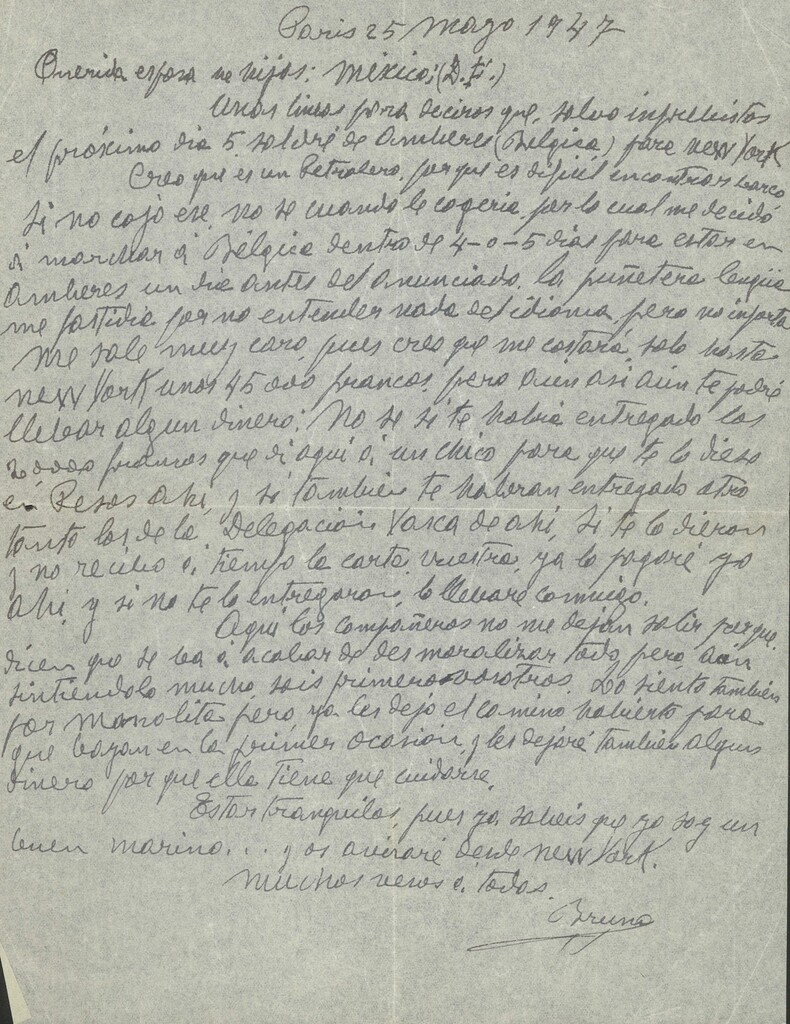 Paris 25 Mayo 1947
Querida esposa e hijos: México; (D.F.)
Unas lineas para deciros que, salvo imprebistos
el próximo dia 5 saldré de Amberes (Belgica) para new York
Creo que es un Petrolero, porque es dificil encontrar barco
Si no cojo ese, no se cuando le cogeria, por lo cual me decido
á marchar á Bélgica dentro de 4-o-5 dias para estar en
Amberes un dia antes del anunciado, la puñetera lengua
me fastidia por no entender nada del idioma, pero no importa
Me sale muy caro, pues creo que me costará, solo hasta
new York unos 45000 francos, pero aun asi aún te podré
llebar algun dinero: No se si te habrá entregado los
20000 francos que di aqui á un chico para que te lo diese
en Pesos ahi, y si tambien te habran entregado otro
tanto los de la Delegación Vasca de ahi, Si te lo dieron
y no recibo á tiempo la carta vuestra, ya lo pagaré yo
ahi y si no te lo entregaron, lo llebaré conmigo.
Aqui los compañeros no me dejan salir porque
dicen que se ba á acabar de desmoralizar todo pero, aún
sintiendolo mucho, sois primero vosotros. Lo siento tambien
por Manolita pero, ya les dejo el camino habierto para
que bayan en la primer ocasión y les dejaré tambien algun
dinero por que ella tiene que cuidarse.
Estar tranquilos, pues ya sabeis que yo soy un
buen marino... y os avisaré desde new York.
Muchos vesos á todos.
Bruno